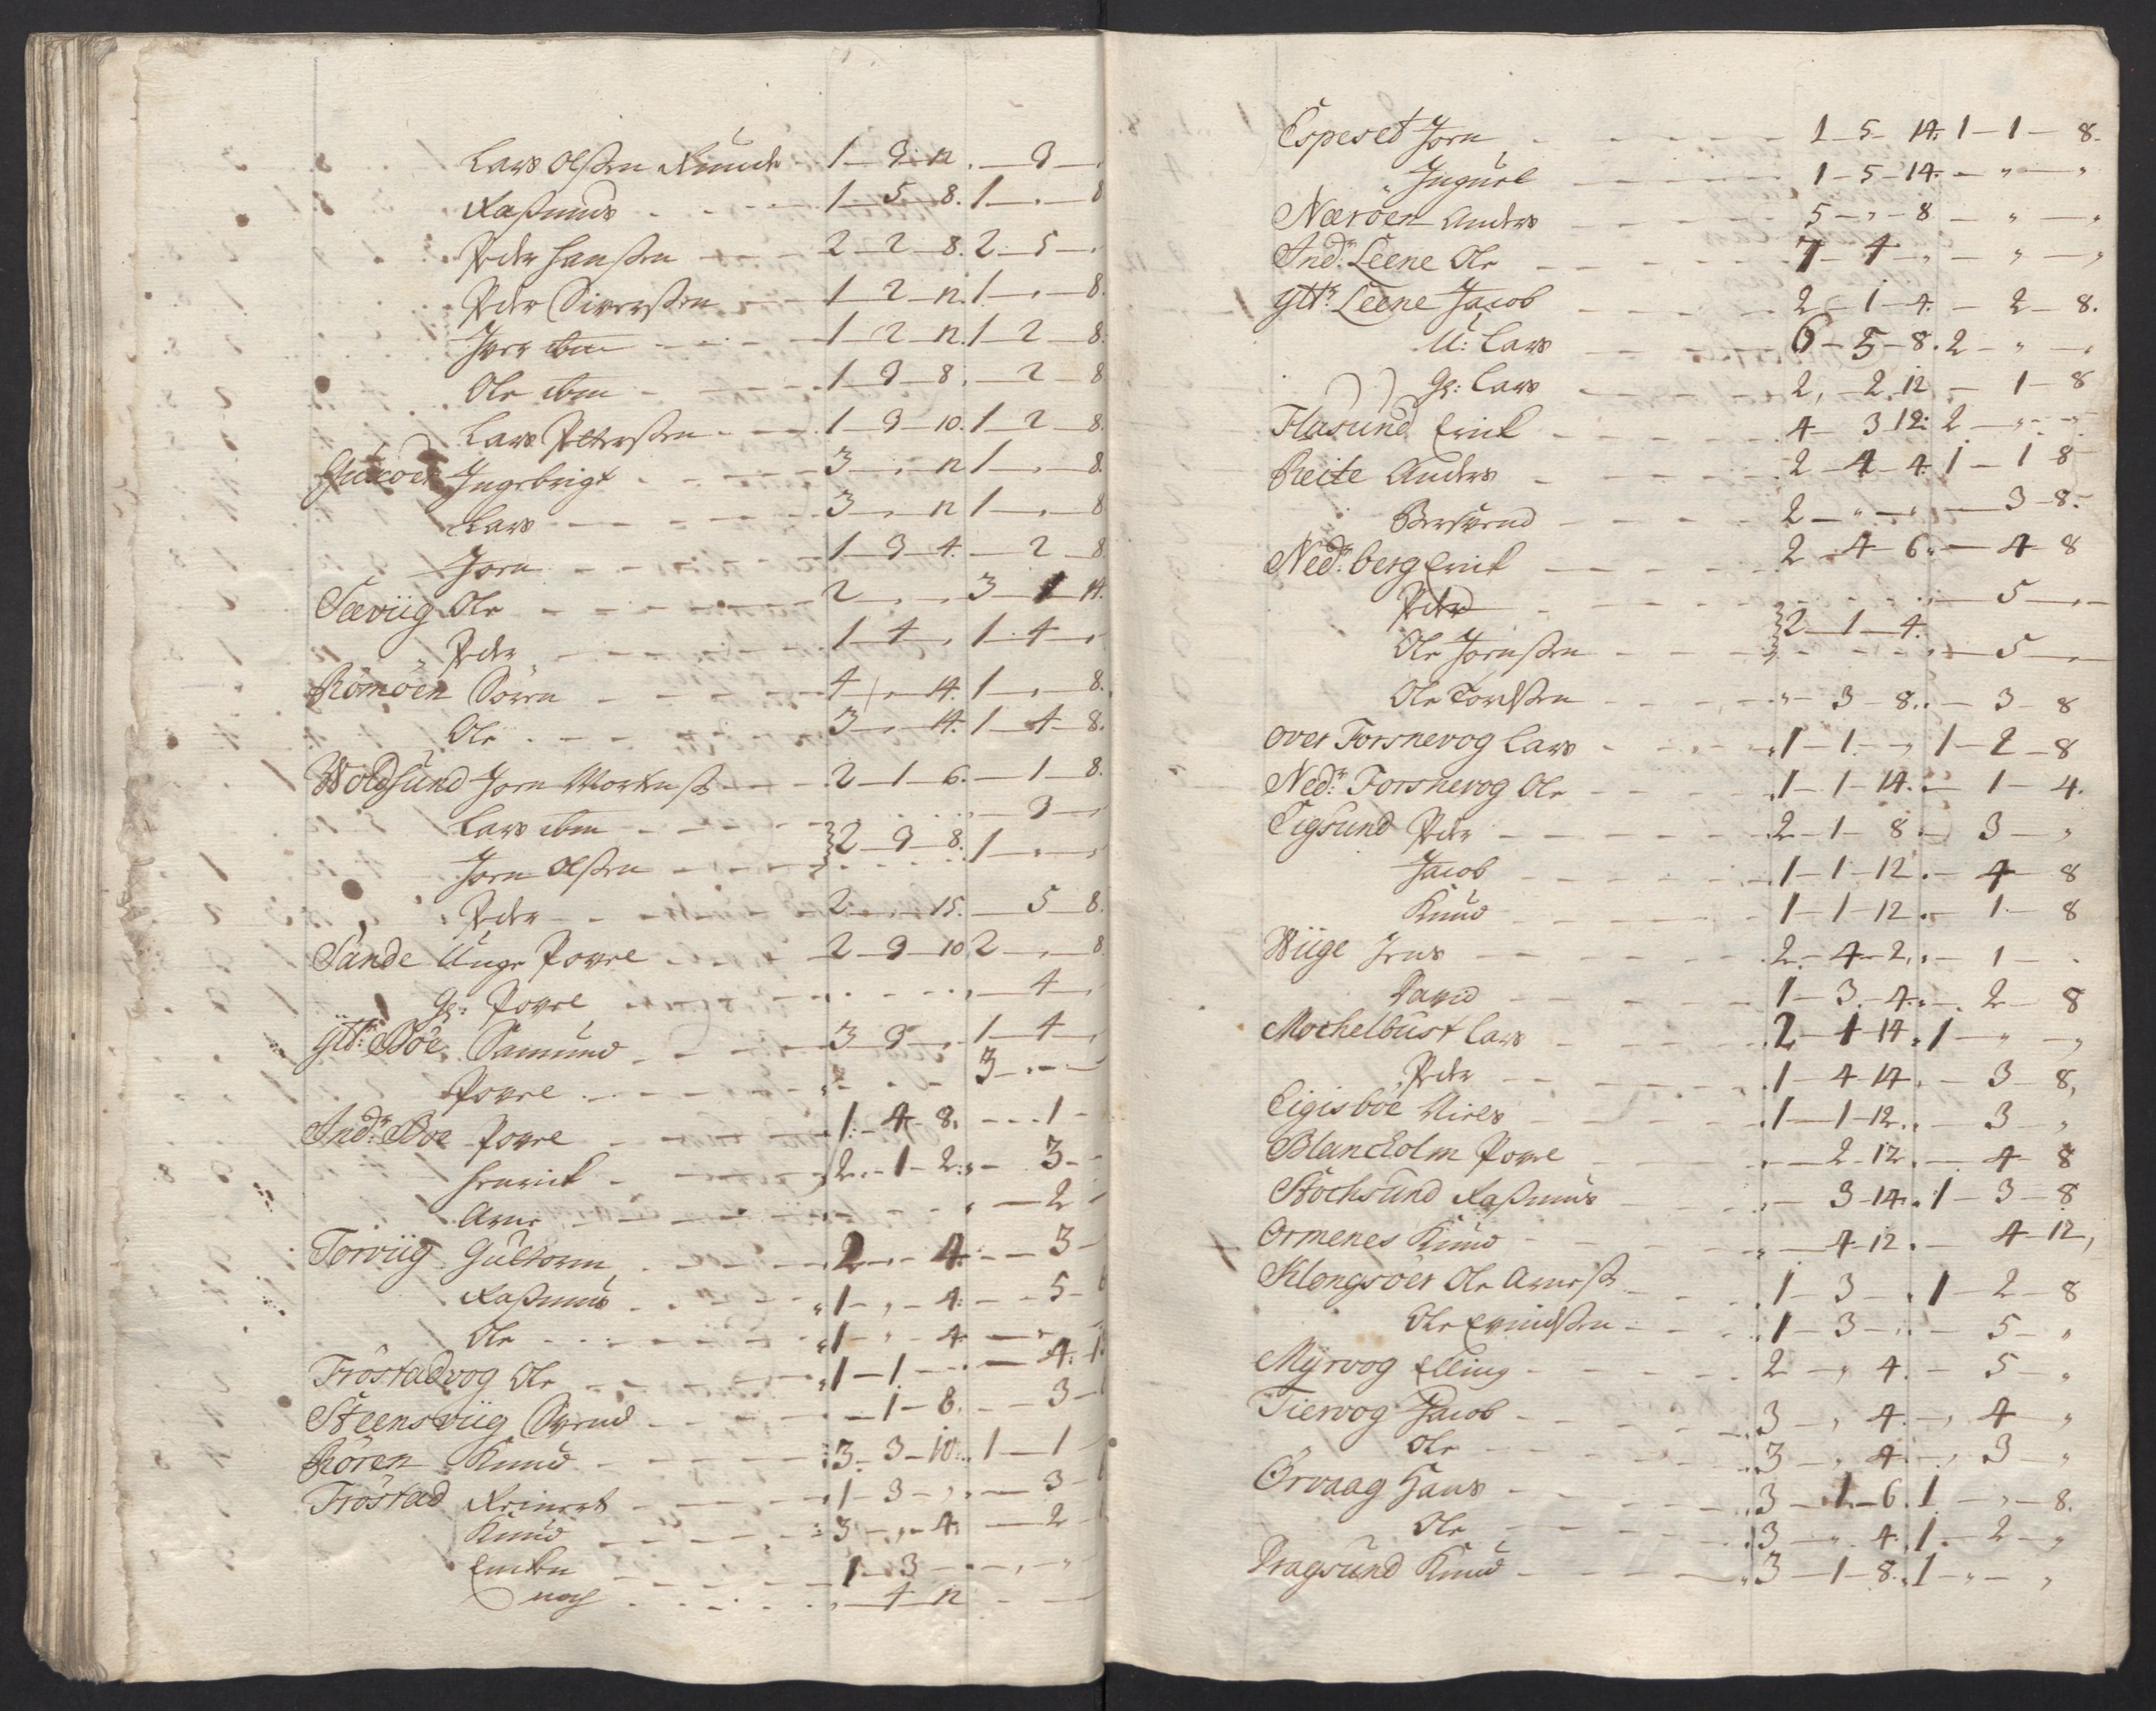 Lars Olssen Runde 1 - 3 - 12. - 3 -
Rasmus - - - 1 - 5 - 8. 1 - " - 8
Peder Hanssen - - - 2 - 2 - 8. 2 - 5 -
Peder Siverssen - - 1 - 2 - 12. 1 - " - 8.
Iver ibm - - - 1 - 2 - 12. 1 - 2 - 8.
Ole ibm - - - 1 - 3 - 8. - 2 - 8
Lars Peterssen - - 1 - 3 - 10. 1 - 2 - 8.
Ingebrigt - - - 3 - " - 12 1 - " - 8.
Lars - - - 3 - " - 12 1 - " - 8
Jorn - - - 1 - 3 - 4. - 2 - 8
Sæviig Ole - - - 2 - " - " 3 - 1 - 14.
" Peder - - - 1 - 4 - " 1 - 4 - "
Römöen Sören - - - 4 - " - 14. 1 - " - 8.
Ole - - - 3 - " - 14. 1 - 4 - 8.
Woldsund Jorn Mortenss - - 2 - 1 - 6. - 1 - 8.
Lars ibm - - - - 3 -
Jorn Olssen - - - 2 - 3 - 8. 1 - " - "
Peder - - - 2 - " - 15. - 5 - 8.
Sande Unge Povel - - 2 - 3 - 10 2 - " - 8
Gl: Povel - - - - 4 -
Ytt: Böe Samund - - - 3 - 3 - " 1 - 4 -
Povel - - - 3 - " -
Ind: Boe Povel - - - 1 - 4 - 8. - - 1 -
Henrick - - - 2 - 1 - 2. - 3 -
Arne - - - - 2 -
Torviig Guttorm - - - 2 - " - 4. - - 3 -
Rasmus - - - 1 - " - 4. - - 5 -
Ole - - - 1 - " - 4
Tröstadvog Ole - - - 1 - 1 - - 4. 1
Steensviig Svend - - - - 1 - 8. - - 3 -
Rören Knud - - - 3 - 3 - 10. 1 - 1
Tröstad Reinert - - - 1 - 3 - " - 3 -
Knud - - - 3 - " - 4. - 2
Encken - - - 1 - 3 - " - "
noch - - - 4 - 12
Espeset Jorn - - - 1 - 5 - 14. 1 - 1 - 8.
" Ingvel - - - 1 - 5 - 14. - " - "
Næröen Anders - - - 5 - " - 8 - " - "
Ind: Leene Ole - - - 7 - 4 - " - " - "
Ytt: Leene Jacob - - - 2 - 1 - 4. - 2 - 8.
U: Lars - - - 6 - 5 - 8. 2 - " - "
Gl: Lars - - - 2, - 2. 12 - 1 - 8
Flasund Erick - - - 4 - 3 12. 2 - " - "
Reite Anders - - - 2 - 4 - 4. 1 - 1 8
Bersvend - - - 2 - " - " - 3 - 8.
Ned: berg Erick - - - 2 - 4 - 6. - 4 - 8
Peder - - - - 5 -
2 - 1 - 4.
Ole Jörnssen - - - - 5 -
Ole - - - " - 3 - 8. - 3 - 8
over Torsnevog Lars - - - 1 - 1 - " 1 - 2 - 8
Ned: Forsnevog Ole - - - 1 - 1 - 14. - 1 - 4.
Eigsund Peder - - - 2 - 1 - 8. - 3 - "
Jacob - - - 1 - 1 - 12. - 4 - 8
Knud - - - 1 - 1 - 12. - 1 - 8
Wiige Jens - - - 2 - 4 - 2. - 1 -
David - - - 1 - 3 - 4. - 2 - 8
Mochelbust Lars - - - 2 - 4 14. 1 - " - "
Peder - - - 1 - 4 - 14. - 3 - 8.
Eigisböe Niels - - - 1 - 1 - 12. - 3 - "
Blanckolm Povel - - - - 2 - 12. - 4 - 8
Stochsund Rasmus - - - - 3 - 14. 1 - 3 - 8
Ormenes Knud - - - - 4 - 12. - 4 - 12,
Klengsöer Ole Arness - - - 1 - 3 - . 1 - 2 - 8
Ole Erichssen - - - 1 - 3 - . - 5 - "
Myrvog Elling - - - 2 - " 4. - 5 - "
Tiervog Jacob - - - 3 - " 4. - 4 - "
Ole - - - 3 - " 4. - 3 - "
Örvaag Hans - - - 3 - 1 - 6. 1 - " - 8.
Ole - - - 3 - " 4. 1 - 2 - "
Dragsund Knud - - - 3 - 1 - 8. 1 - " - "